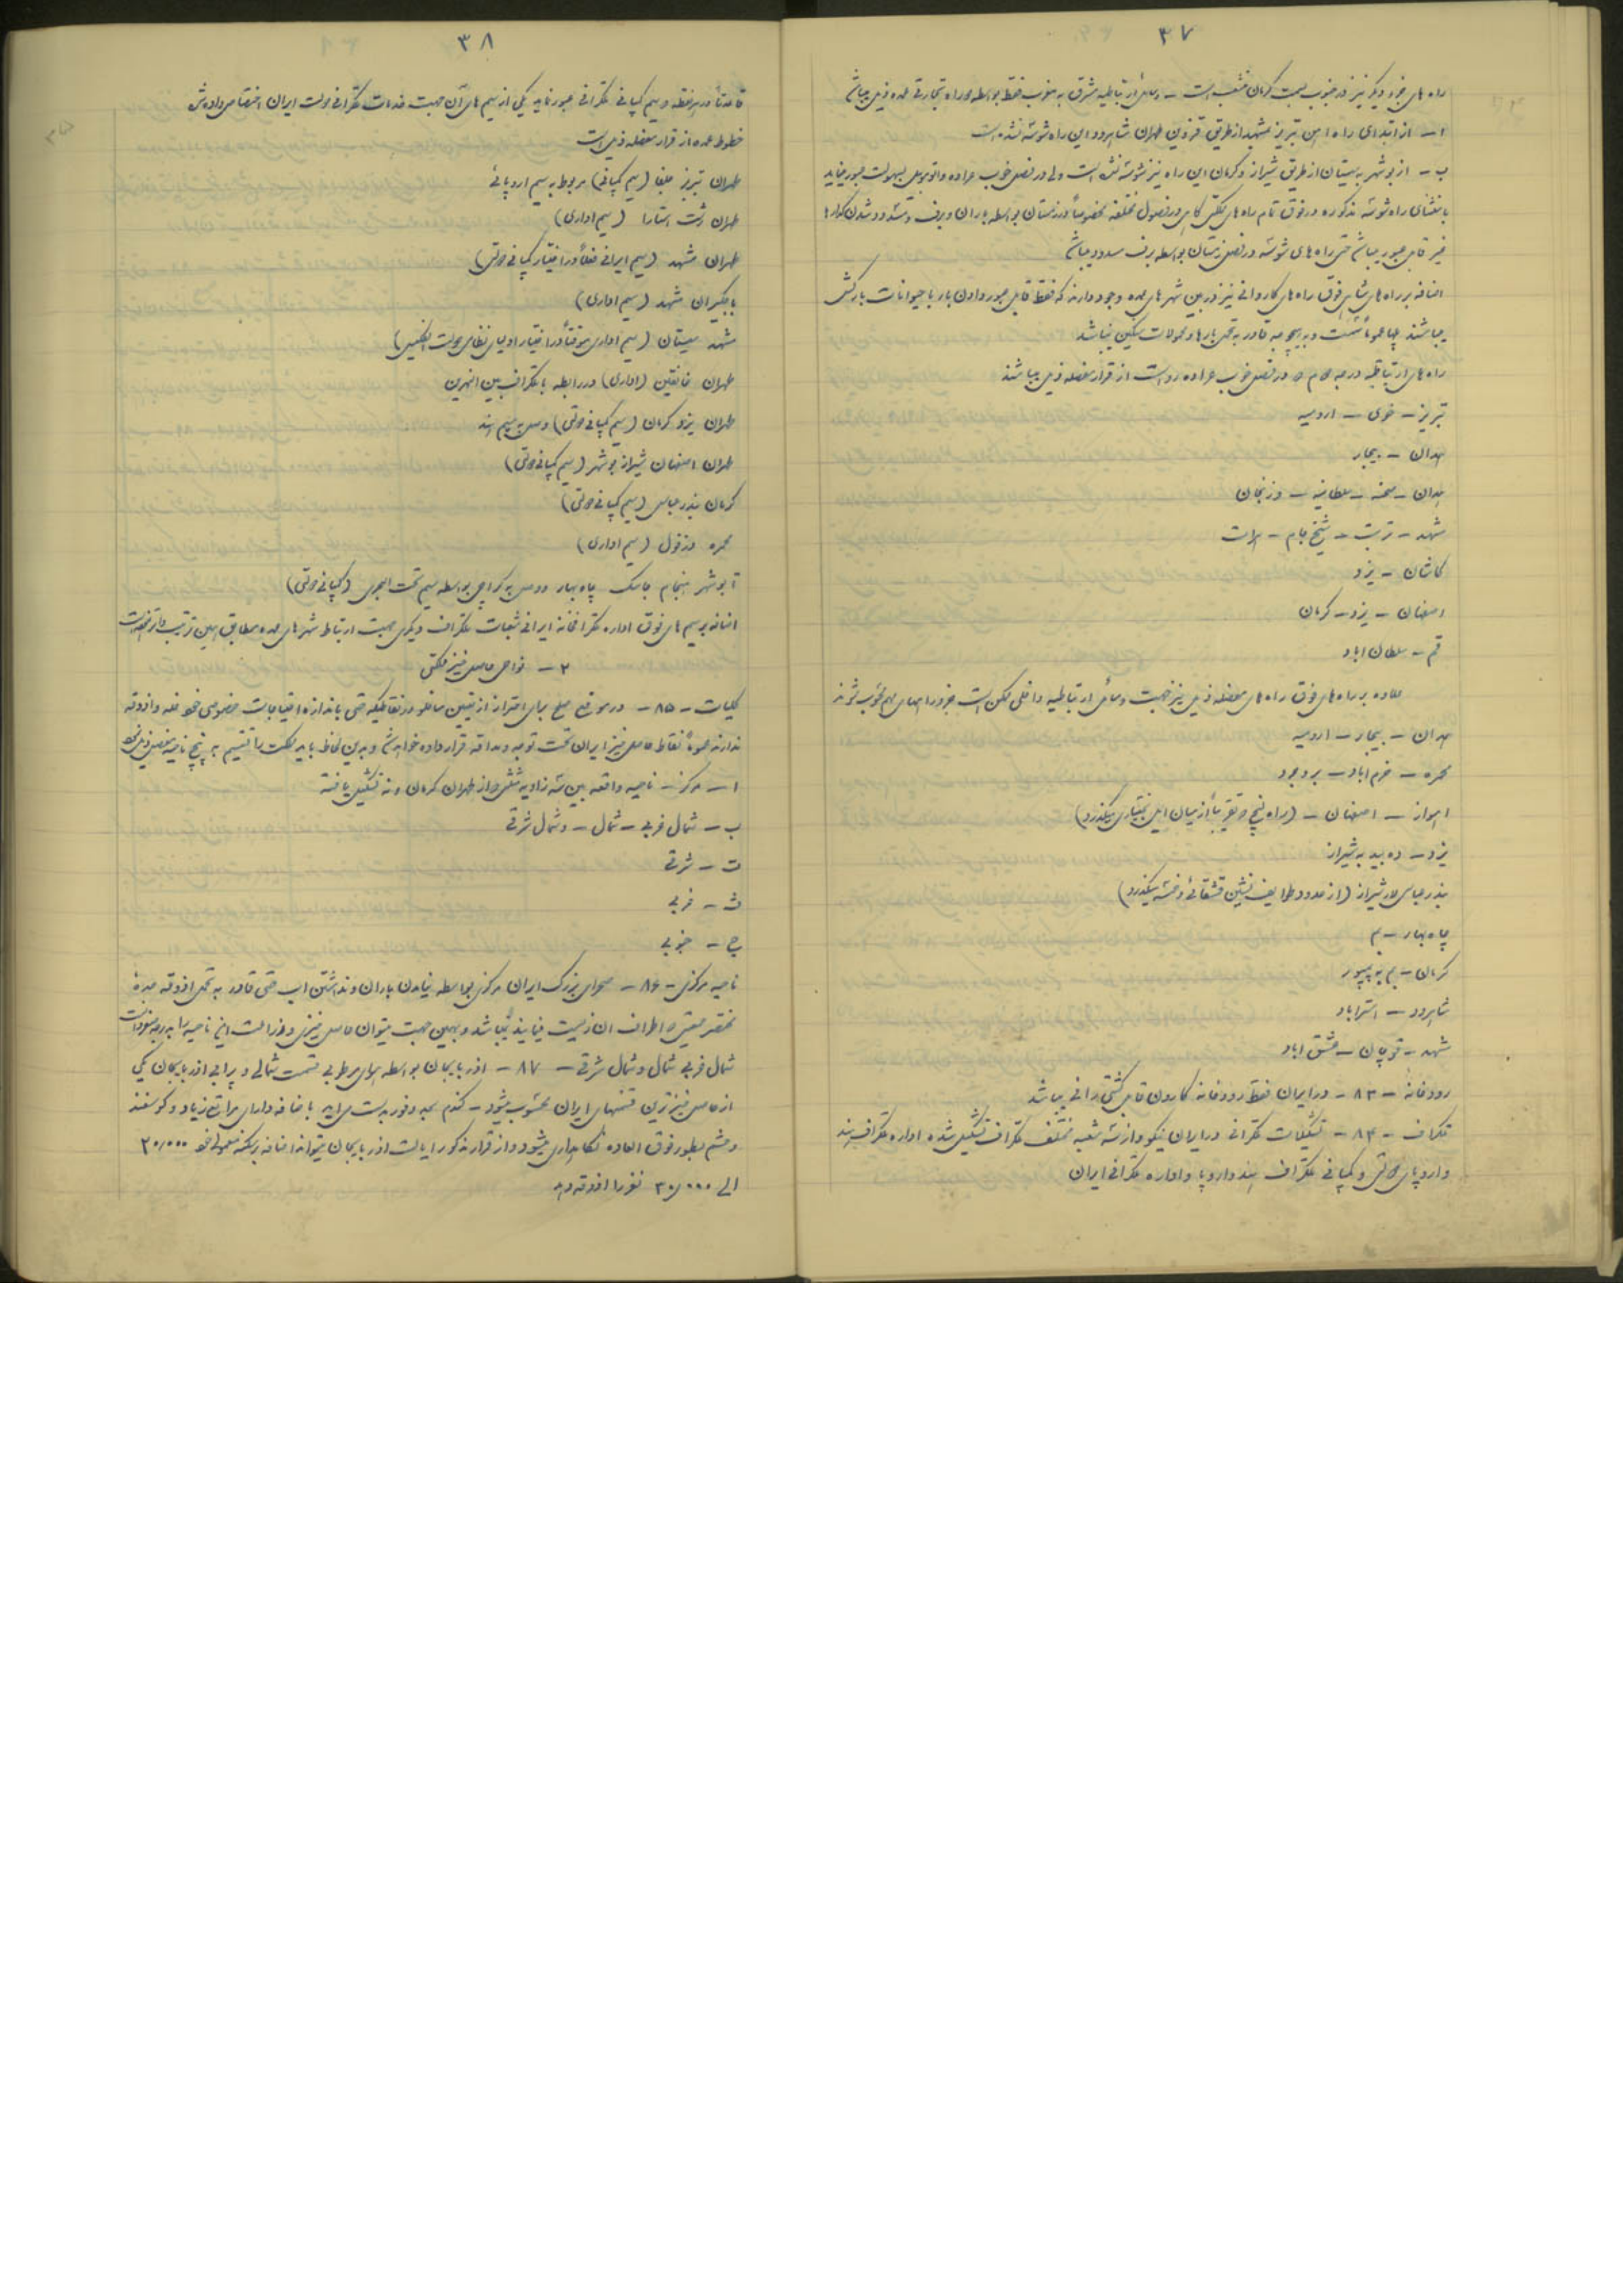 ۳۷
راه های جزو دیگر نیز در جنوب بسمت کرمان منشعب است – وسائل ارتباطیه مشرق به مغرب فقط بواسطه دو راه تجارتی عمده ذیل میباشد
ا – از ابتدای راه آهن تبریز بمشهد از طریق قزوین طهران شاهرود این راه شوسه نشده است
ب – از بوشهر به سیستان از طریق شیراز و کرمان این راه نیز شوسه نشده است ولی در فصل خوب عراده و اتوموبیل بسهولت عبور مینماید
باستثنای راه شوسه مذکوره در فوق تمام راه های مملکتی در فصول مختلفه مخصوصاً در زمستان بواسطه باران و برف و مسدود شدن گدارها
غیر قابل عبور میباشد حتی راه های شوسه در فصل زمستان بواسطه برف مسدود میباشد
اضافه بر راه های فوق راه های کاروانی نیز در بین شهر های عمده وجود دارند که فقط قابل عبور دادن بار با حیوانات بارکش
میباشند و بهیچوجه قادر به تحمل بارها و محمولات سنگین نمیباشند
راه های ارتباطیه درجه دوم که در فصل خوب عراده رو است از قرار مفصله ذیل میباشند
تبریز – خوی – ارومیه
همدان – بیجار
همدان – – سلطانیه – و زنجان
مشهد – تربت – شیخ جام – هرات
کاشان – یزد
اصفهان – یزد – کرمان
قم – سلطان اباد
علاوه بر راه های فوق راه های مفصله ذیل نیز جهت وسائل ارتباطیه داخلی ممکن است جزو راههای مهم محسوب شوند
همدان – بیجار – ارومیه
محمره – خرم اباد – بروجرد
اهواز – اصفهان – (راه که تقریباً از میان ایل بختیاری میگذرد)
یزد – ده بید به شیراز
بندر عباس لار شیراز (از حدود طوایف قشقائی و خمسه میگذرد)
چاه بهار – بم
کرمان – بم به بمپور
شاهرود – استراباد
مشهد – قوچان – عشق اباد
رودخانه – ۸۳ – در ایران فقط رودخانه کارون قابل کشتی رانی میباشد
تلگراف – ۸۴ – تشکیلات تلگرافی در ایران نیکو و از سه شعبه مختلف تلگراف تشکیل شده اداره تلگراف هند
و اروپای دولتی و کمپانی تلگراف هند و اروپا و اداره تلگرافی ایران
۳۸
قاعدتاً در هر نقطه که سیم کمپانی تلگرافی عبور نماید یکی از سیم های آن جهت خدمات تلگرافی دولت ایران اختصاص داده شده
خطوط عمده از قرار مفصله ذیل است
طهران تبریز جلفا (سیم کمپانی) مربوط به سیم اروپائی
طهران رشت استارا (سیم اداری)
طهران مشهد (سیم ایرانی فعلاً در اختیار کمپانی دولتی)
باجگیران مشهد (سیم اداری)
مشهد سیستان (سیم اداری موقتاً در اختیار اولیای نظامی دولت انگلیس)
طهران خانقین (اداری) در رابطه با تلگراف بین النهرین
طهران یزد کرمان (سیم کمپانی دولتی) وصل به سیم هند
طهران اصفهان شیراز بوشهر (سیم کمپانی دولتی)
کرمان بندر عباس (سیم کمپانی دولتی)
محمره دزفول (سیم اداری)
بوشهر هنجام جاسک چاه بهار و وصل به کراچی بواسطه سیم تحت البحری (کمپانی دولتی)
اضافه بر سیم های فوق اداره تلگرافخانه ایرانی شعبات تلگراف دیگری جهت ارتباط شهر های عمده مطابق همین ترتیب دائر نموده است
۲ – نواحی حاصل خیز مملکتی
کلیات – ۸۵ – در موقع صلح برای احتراز از تعیین ساخلو در نقاطیکه حتی باندازه احتیاجات خصوصی خود غله و اذوقه
ندارند عموماً نقاط حاصل خیز ایران تحت توجه و مداقه قرار داده خواهد شد و بدین لحاظ باید مملکت را تقسیم به پنج ناحیه مفصل ذیل نمود
ا – مرکز – ناحیه واقعه بین سه زاویه مثلثی که از طهران کرمان و تشکیل یافته
ب – شمال غربی – شمال – و شمال شرقی
ت – شرقی
ث – غربی
ج – جنوبی
ناحیه مرکزی – ۸۶ – صحرای بزرگ ایران مرکزی بواسطه نیامدن باران و نداشتن آب حتی قادر به تحمل اذوقه عده
مختصر جمعیتی که اطراف آن زیست مینمایند نمیباشد و بهمین جهت میتوان حاصل خیزی و زراعت این ناحیه را
شمال غربی شمال و شمال شرقی – ۸۷ – آذربایجان بواسطه هوای مرطوبی قسمت شمالی و پر ابی آذربایجان یکی
از حاصل خیز ترین قسمتهای ایران محسوب میشود – گندم بحد وفور بدست میاید باضافه دارای مراتع زیاد و گوسفند
و حشم بطور فوق العاده نگاهداری میشود و از قرار مذکور ایالت آذربایجان میتواند اضافه بر سکنه معمولی خود ۲۰٫۰۰۰
الی ۳۰٫۰۰۰ نفر را اذوقه دهد